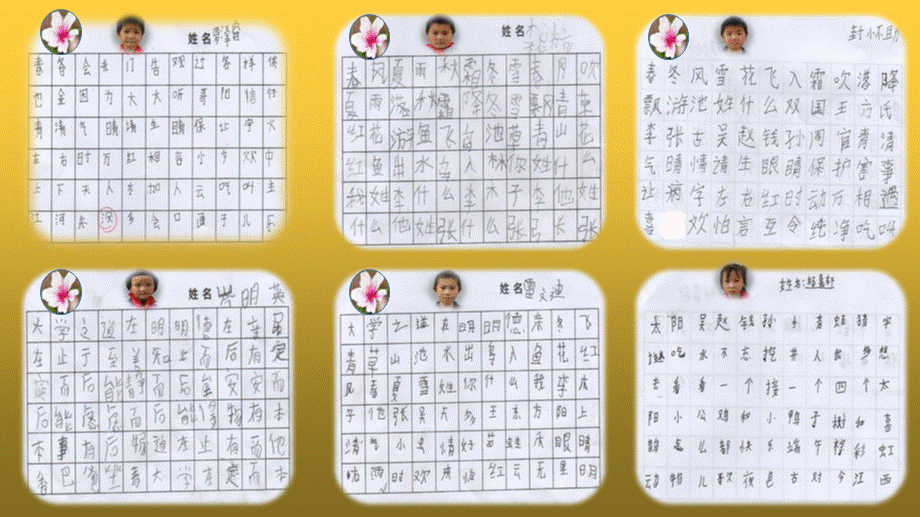 姓名
春各会头门告观过各样伙
也全因力大大听哥阳信行
青清气晴请生晴保让字火
左右时万红相名小岁欢中
上下天人方加人云吃叫主
江河去没乡会口通子儿乐
姓名
春风夏雨秋霜冬雪春风吹
夏雨落秋霜降冬雪飘青草
红花游鱼飞鸟池草青山花
红鱼出水鸟入林你姓什么
我姓李什么李木子李他姓
什么他姓张什么张弓长张
封怀助
春冬风雪花飞入霜吹落降
飘游池姓什么双国王方氏
李张古吴赵钱孙周官青清
气晴情请生眼睛保护害事
让病字左右红时动万相遇
喜欢怕言互令纯净吃叫
姓名 岑明英
大学之道在明明德在亲民
在止于至善知止而后有定
定而后能静而后能安安而
后能虑虑而后能得物有本
本事有后物道在止有而他
春巴道生春大学在定而本
姓名 雷文迪
大学之道在明明德亲冬飞
青草山池水出鸟入鱼花红
风春夏雪姓你什么我李木
子他张吴天多王东方阳上
清气小虫情好苗蜻庆眼睛
时欢井迎红云无里明
姓名:
太阳吴赵钱孙小青蛙猜字
谜吃水不忘挖井人出梦想
去看看一个接一个四个太
阳小公鸡和小鸭子树和喜
鹊怎么都快乐端午粽彩虹
动物儿歌夜色古对今江西